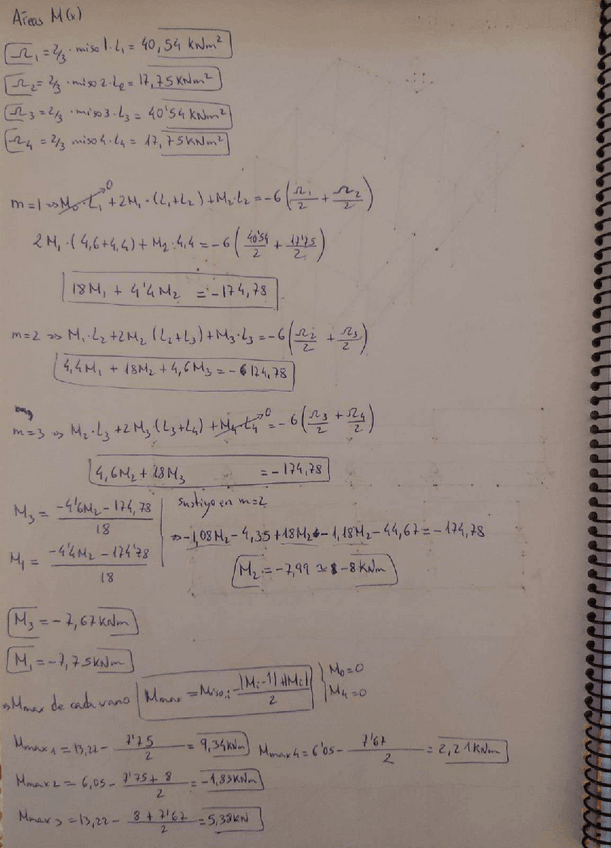 Áreas M(x)
Ω₁ = 2/3 · Miso1 · L₁ = 40,54 kNm²
Ω₂ = 2/3 · Miso2 · L₂ = 17,75 kNm²
Ω₃ = 2/3 · Miso3 · L₃ = 40'54 kNm²
Ω₄ = 2/3 Miso4 · L₄ = 17,75 kNm²
m=1 ⇒ M₀ · L₁ + 2M₁ · (L₁+L₂) + M₂ · L₂ = -6 (Ω₁/2 + Ω₂/2)
0
2M₁ · (4,6+4,4) + M₂ · 4,4 = -6 (40'54/2 + 17'75/2)
18M₁ + 4'4M₂ = -174,78
m=2 ⇒ M₁ · L₂ + 2M₂ (L₂+L₃) + M₃ · L₃ = -6 (Ω₂/2 + Ω₃/2)
4,4M₁ + 18M₂ + 4,6M₃ = -174,78
m=3 ⇒ M₂ · L₃ + 2M₃ (L₃+L₄) + M₄ · L₄ = -6 (Ω₃/2 + Ω₄/2)
0
4,6M₂ + 18M₃ = -174,78
M₃ = (-4'6M₂ - 174,78)/18
M₁ = (-4'4M₂ - 174'78)/18
Sustituyo en m=2
⇒ -1,08M₂ - 4,35 + 18M₂ - 1,18M₂ - 44,67 = -174,78
M₂ = -7,99 ≈ -8 kNm
M₃ = -7,67 kNm
M₁ = -7,75 kNm
⇒ Mmax de cada vano
Mmax = Miso,i - (|Mi-1| + |Mi|)/2
M₀ = 0
M₄ = 0
Mmax 1 = 13,22 - 7'75/2 = 9,34 kNm
Mmax 4 = 6'05 - 7'67/2 = 2,21 kNm
Mmax 2 = 6,05 - (7'75 + 8)/2 = -1,83 kNm
Mmax 3 = 13,22 - (8 + 7'67)/2 = 5,38 kN